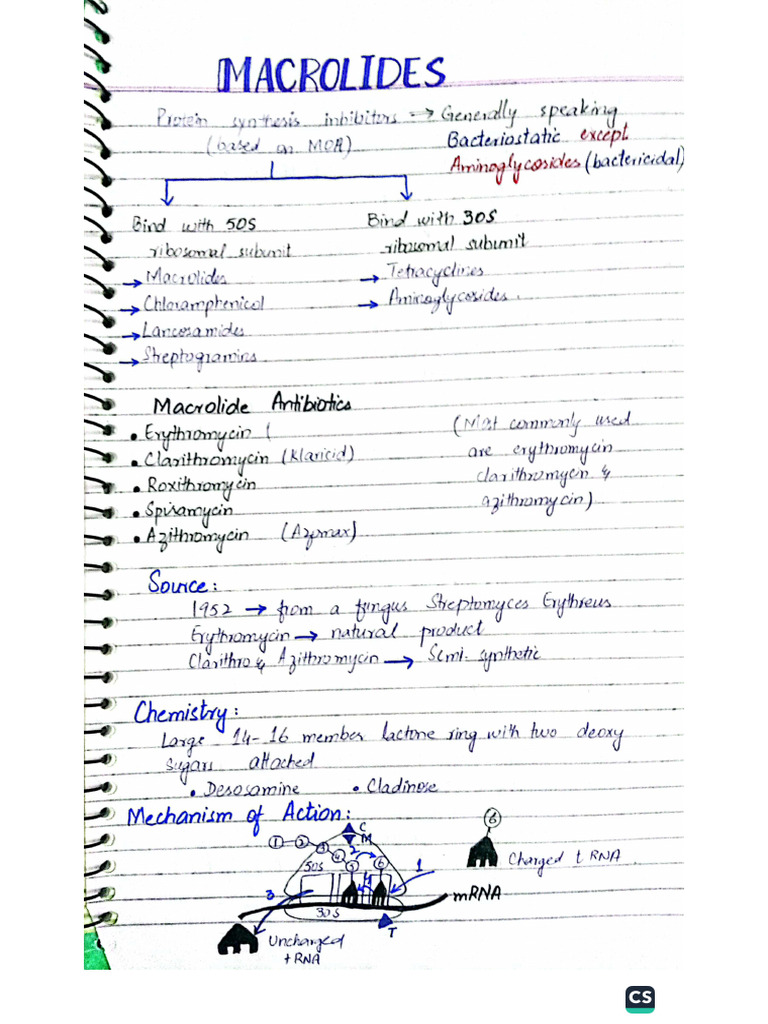 MACROLIDES
Protein synthesis inhibitors → Generally speaking
(based on MOA) Bacteriostatic except
Aminoglycosides (bactericidal)
Bind with 50S Bind with 30S
ribosomal subunit ribosomal subunit
→ Macrolides → Tetracyclines
→ Chloramphenicol → Aminoglycosides.
→ Lancosamides
→ Streptogramins.
Macrolide Antibiotics
• Erythromycin ( (Most commonly used
• Clarithromycin (Klaricid) are erythromycin
• Roxithromycin clarithromycin &
• Spiramycin azithromycin)
• Azithromycin (Azomax)
Source:
1952 → from a fungus Streptomyces Erythreus
Erythromycin → natural product
Clarithro & Azithromycin → Semi. synthetic
Chemistry:
Large 14-16 member lactone ring with two deoxy
sugars attached
• Desosamine • Cladinose
Mechanism of Action:
6
C
M
1 2 3 4 5 6
2
50S
1
Charged t RNA
3
mRNA
30S
T
Uncharged
tRNA
CS